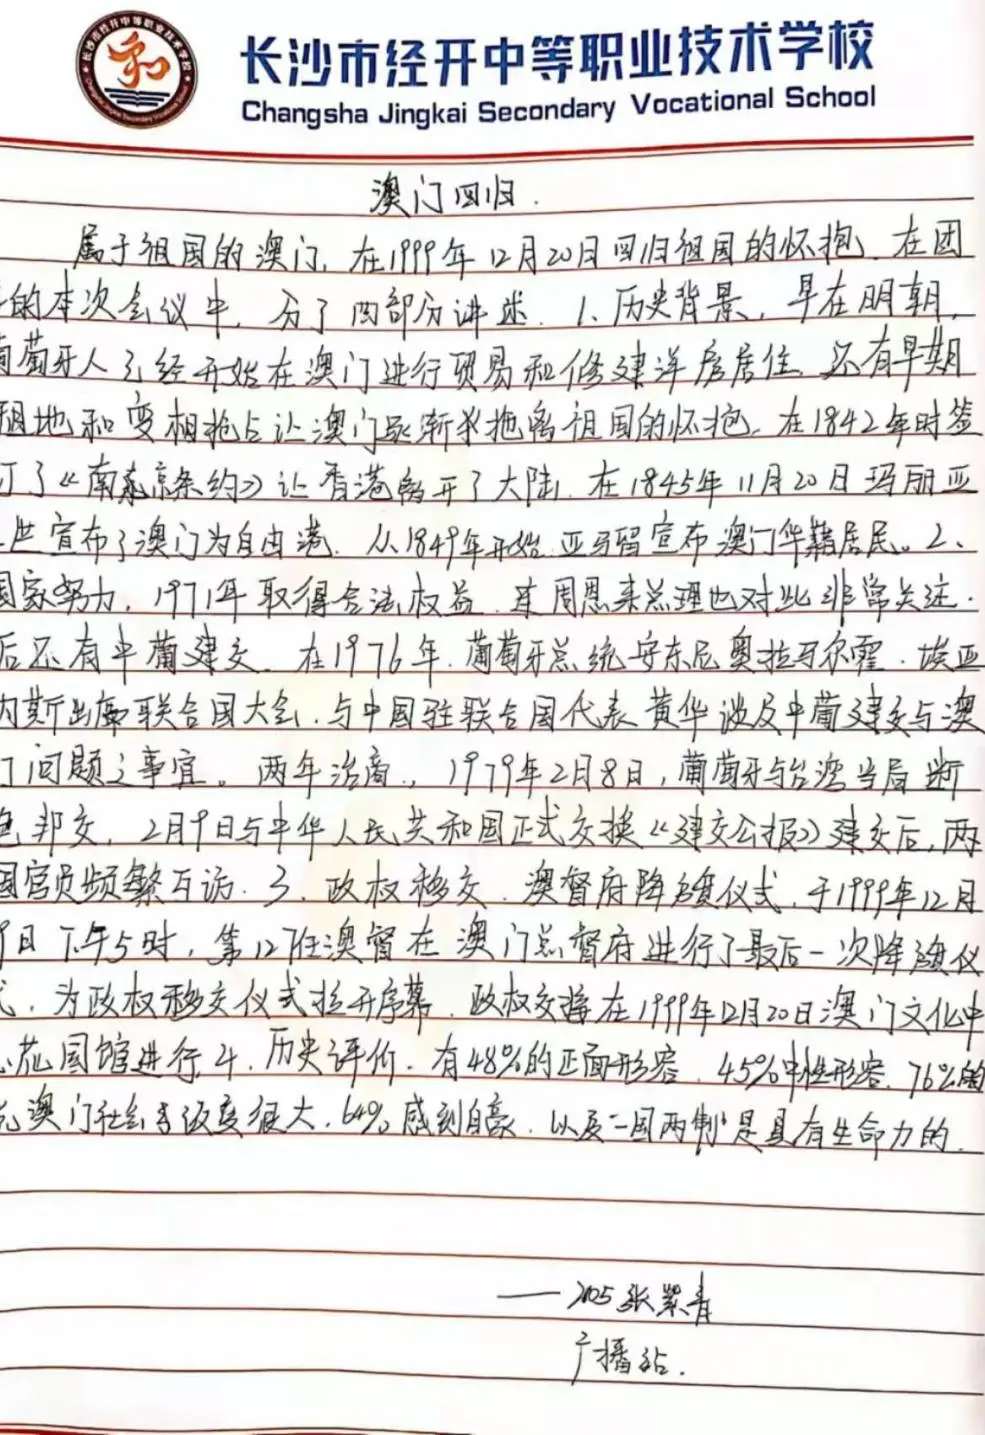 长沙市经开中等职业技术学校
Changsha Jingkai Secondary Vocational School
澳门回归.
属于祖国的澳门,在1999年12月20日回归祖国的怀抱.在团
的本次会议中,分了四部分讲述.1、历史背景,早在明朝,
葡萄牙人已经开始在澳门进行贸易和修建洋房居住.还有早期
租地和变相抢占让澳门逐渐拖离祖国的怀抱.在1842年时签
订了《南京条约》让香港离开了大陆.在1845年11月20日玛丽亚
世宣布了澳门为自由港.从1849年开始.亚马留宣布澳门华籍居民。2、
国家努力,1971年取得合法权益.连周恩来总理也对此非常关注.
后还有中葡建交.在1976年.葡萄牙总统安东尼奥拉马尔霍.埃亚
内斯出席联合国大会.与中国驻联合国代表黄华谈及中葡建交与澳
门问题之事宜。两年洽商.,1979年2月8日,葡萄牙与台湾当局断
绝邦交,2月9日与中华人民共和国正式交换《建交公报》建交后,两
国官员频繁互访.3.政权移交.澳督府降旗仪式.于1999年12月
9日下午5时,第127任澳督在澳门总督府进行了最后一次降旗仪
式,为政权移交仪式拉开序幕.政权交接在1999年12月20日澳门文化中
心花园馆进行4.历史评价.有48%的正面形容.45%中性形容.76%的
澳门社会喜改变很大.64%感到自豪.以及"一国两制"是具有生命力的.
——2105张紫青
广播站.